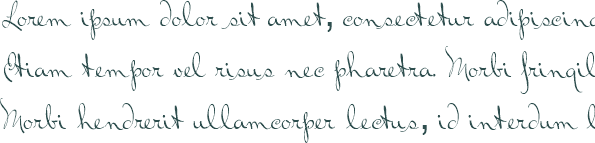 Lorem ipsum dolor sit amet, consectetur adipiscing
Etiam tempor vel risus nec pharetra. Morbi fringil
Morbi hendrerit ullamcorper lectus, id interdum l